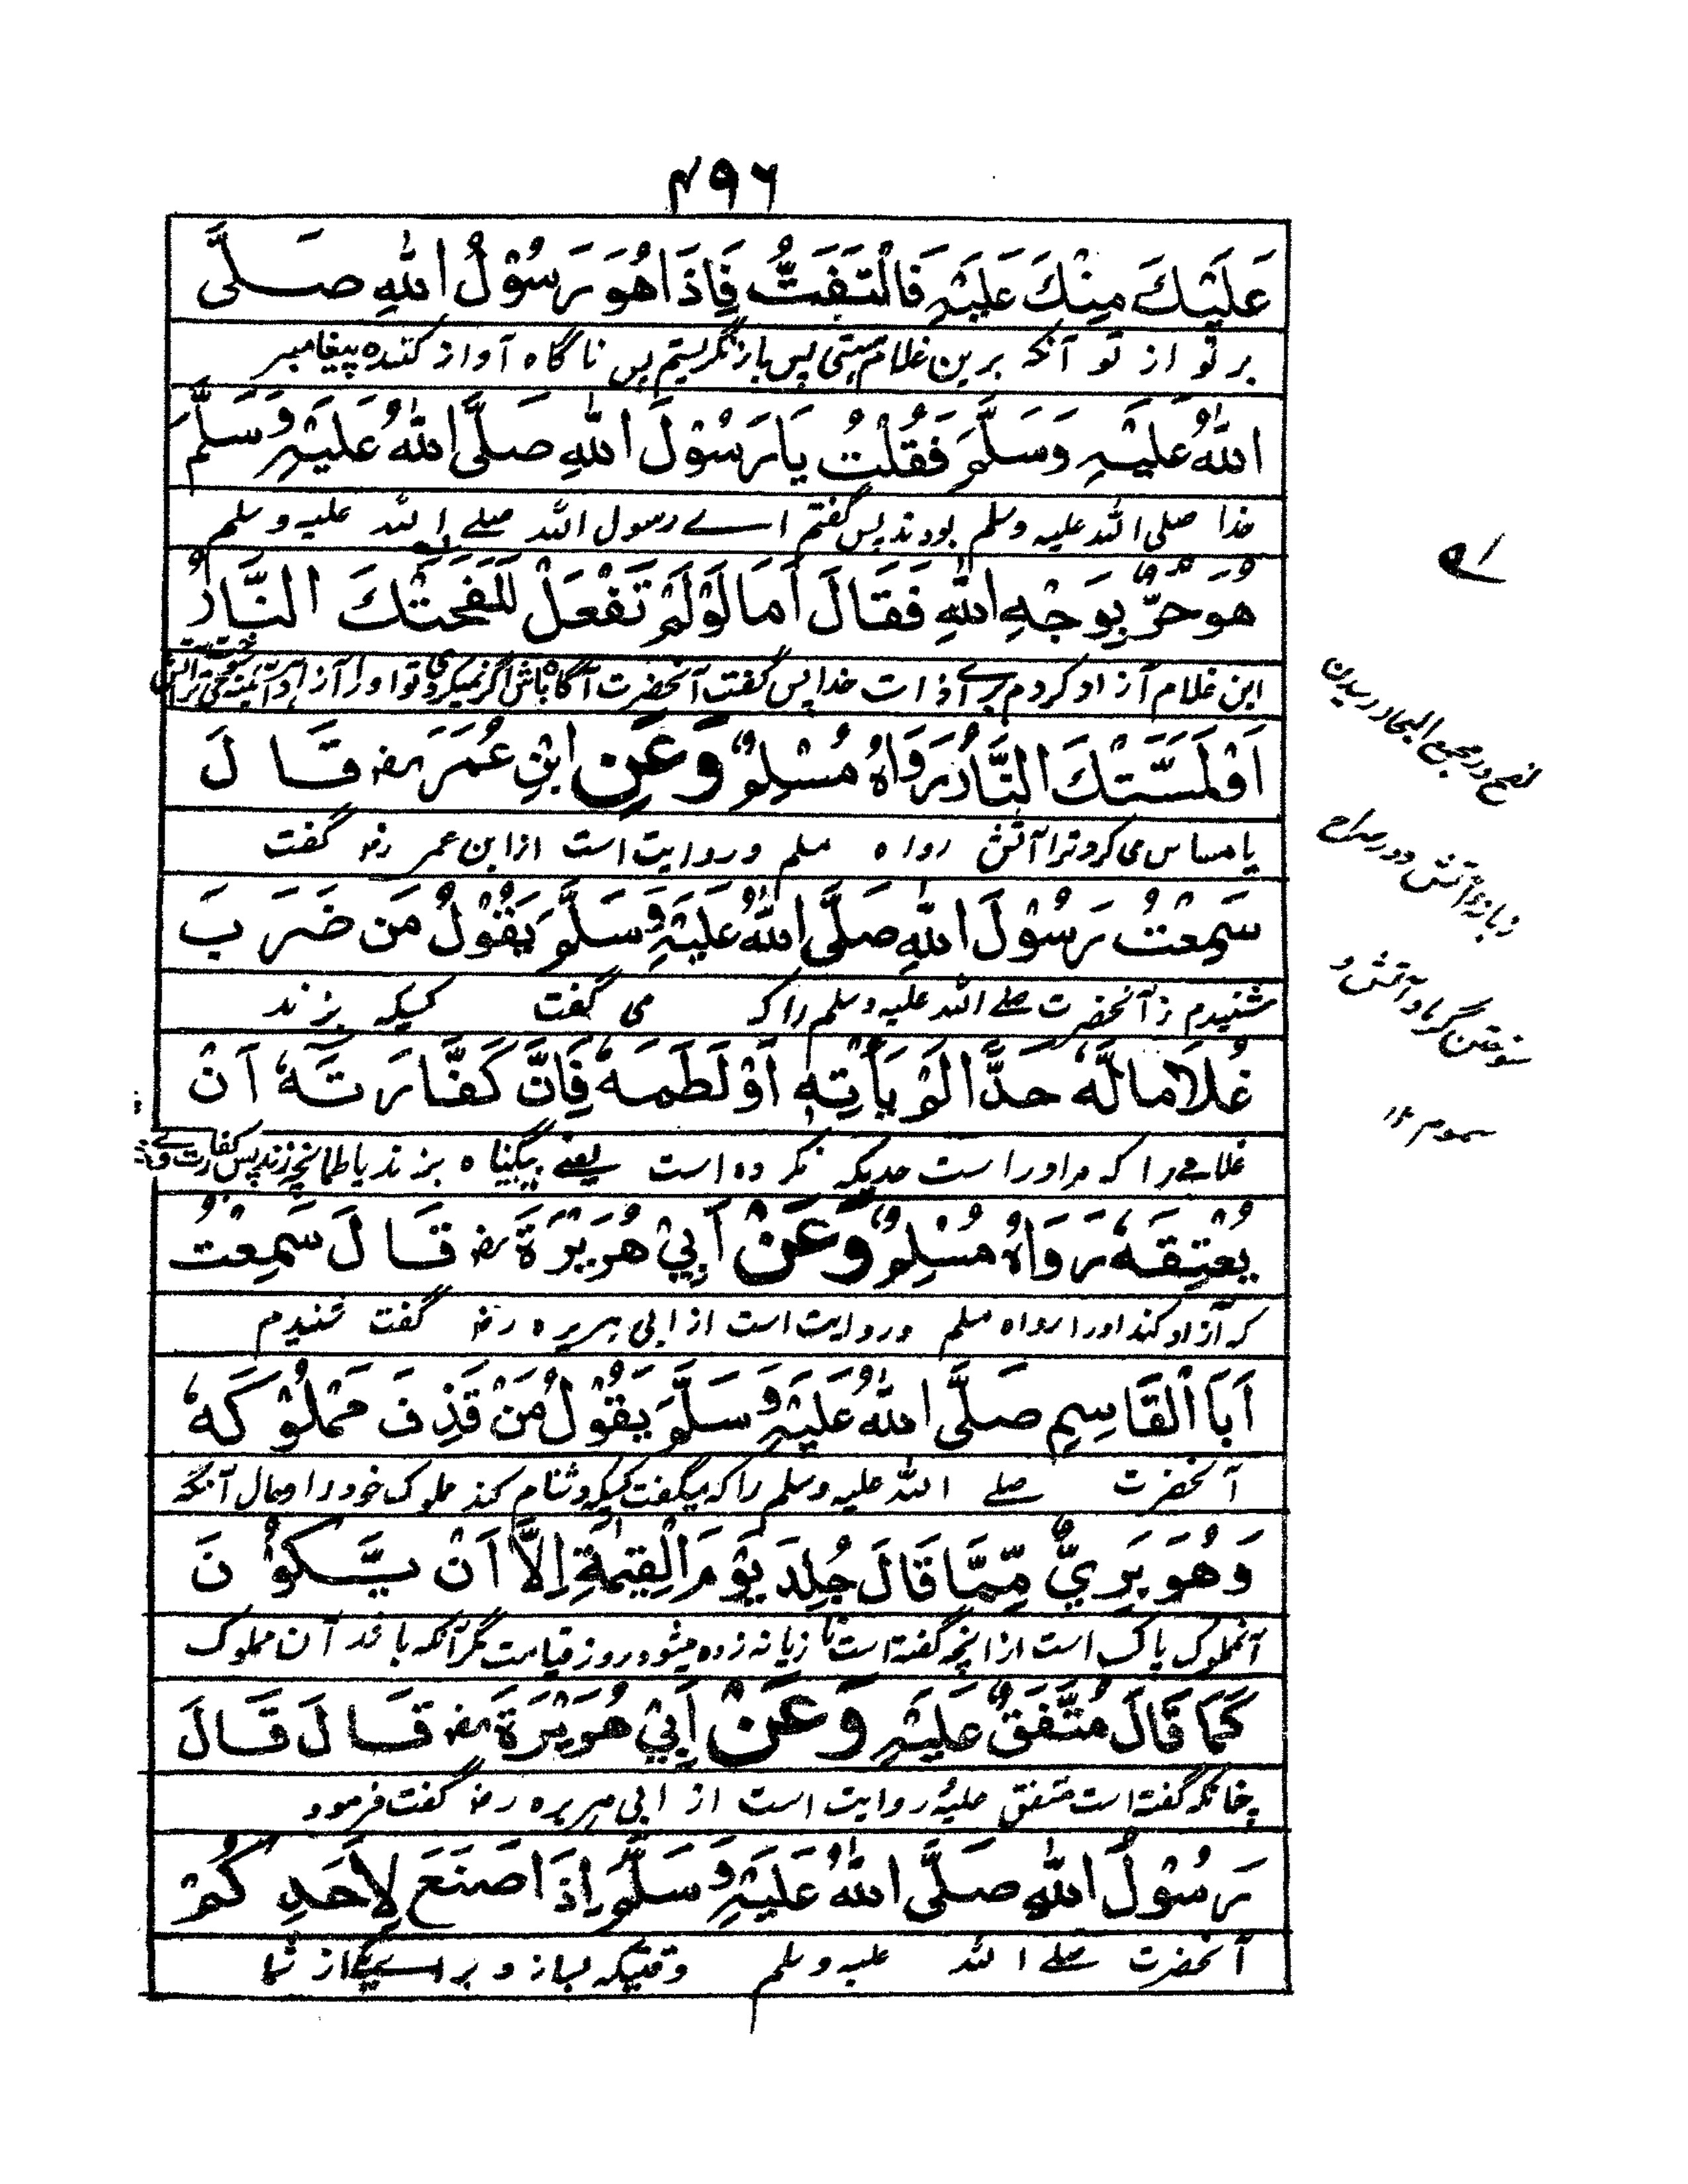 ۴۹۶
عَلَيْكَ مِنْكَ عَلَيْهِ فَالْتَفَتُّ فَاِذَا هُوَ رَسُوْلُ اللهِ صَلَّى
بر تو از تو آنکه برین غلام ہستی پس باز نگریستم پس ناگاه آواز کننده پیغامبر
اللهُ عَلَيْهِ وَسَلَّمَ فَقُلْتُ يَا رَسُوْلَ اللهِ صَلَّى اللهُ عَلَيْهِ وَسَلَّمَ
خدا صلی الله علیه وسلم بودند پس گفتم اے رسول الله صلے الله علیه وسلم
هُوَ حُرٌّ بِوَجْهِ اللهِ فَقَالَ اَمَا لَوْ لَمْ تَفْعَلْ لَلَفَحَتْكَ النَّارُ
این غلام آزاد کردم براے ذات خدا پس گفت آنحضرت آگاه باش اگر نمیکردی تو او را آزاد
اَوْ لَمَسَّتْكَ النَّارُ رَوَاهُ مُسْلِمٌ وَعَنِ ابْنِ عُمَرَ رض قَالَ
یا مساس می کرد ترا آتش رواه مسلم و روایت است از ابن عمر رض گفت
سَمِعْتُ رَسُوْلَ اللهِ صَلَّى اللهُ عَلَيْهِ وَسَلَّمَ يَقُوْلُ مَن ضَرَبَ
شنیدم ز آنحضرت صلے الله علیه وسلم را که می گفت کسیکه بزند
غُلَامًا لَّهٗ حَدًّا لَمْ يَاْتِهٖ اَوْ لَطَمَهٗ فَاِنَّ كَفَّارَتَهٗ اَنْ
غلامے را که مر او را است حدیکه نکرده است یعنے بیگناه بزند یا طمانچه زند پس کفارت
يُعْتِقَهٗ رَوَاهُ مُسْلِمٌ وَعَنْ اَبِيْ هُرَيْرَةَ رض قَالَ سَمِعْتُ
که آزاد کند او را رواه مسلم و روایت است از ابی هریره رض گفت شنیدم
اَبَا الْقَاسِمِ صَلَّى اللهُ عَلَيْهِ وَسَلَّمَ يَقُوْلُ مَنْ قَذِفَ مَمْلُوْكَهٗ
آنحضرت صلے الله علیه وسلم را که میگفت کسیکه دشنام کند مملوک خود را و حال آنکه
وَهُوَ بَرِيٌّ مِّمَّا قَالَ جُلِدَ يَوْمَ الْقِيٰمَةِ اِلَّا اَنْ يَّكُوْنَ
آنمملوک پاک است از انچه گفته است تا زیانه زده میشود روز قیامت مگر آنکه باشد آن مملوک
كَمَا قَالَ مُتَّفَقٌ عَلَيْهِ وَعَنْ اَبِيْ هُرَيْرَةَ رض قَالَ قَالَ
چنانکه گفته است متفق علیه روایت است از ابی هریره رض گفت فرمود
رَسُوْلُ اللهِ صَلَّى اللهُ عَلَيْهِ وَسَلَّمَ اِذَا صَنَعَ لِاَحَدِكُمْ
آنحضرت صلے الله علیه وسلم وقتیکه بسازد براے یکے از شما
لفح در مجمع البحار رسیدن
زبانهٔ آتش و در صراح
سوختن گرما و آتش و
سموم ۱۲